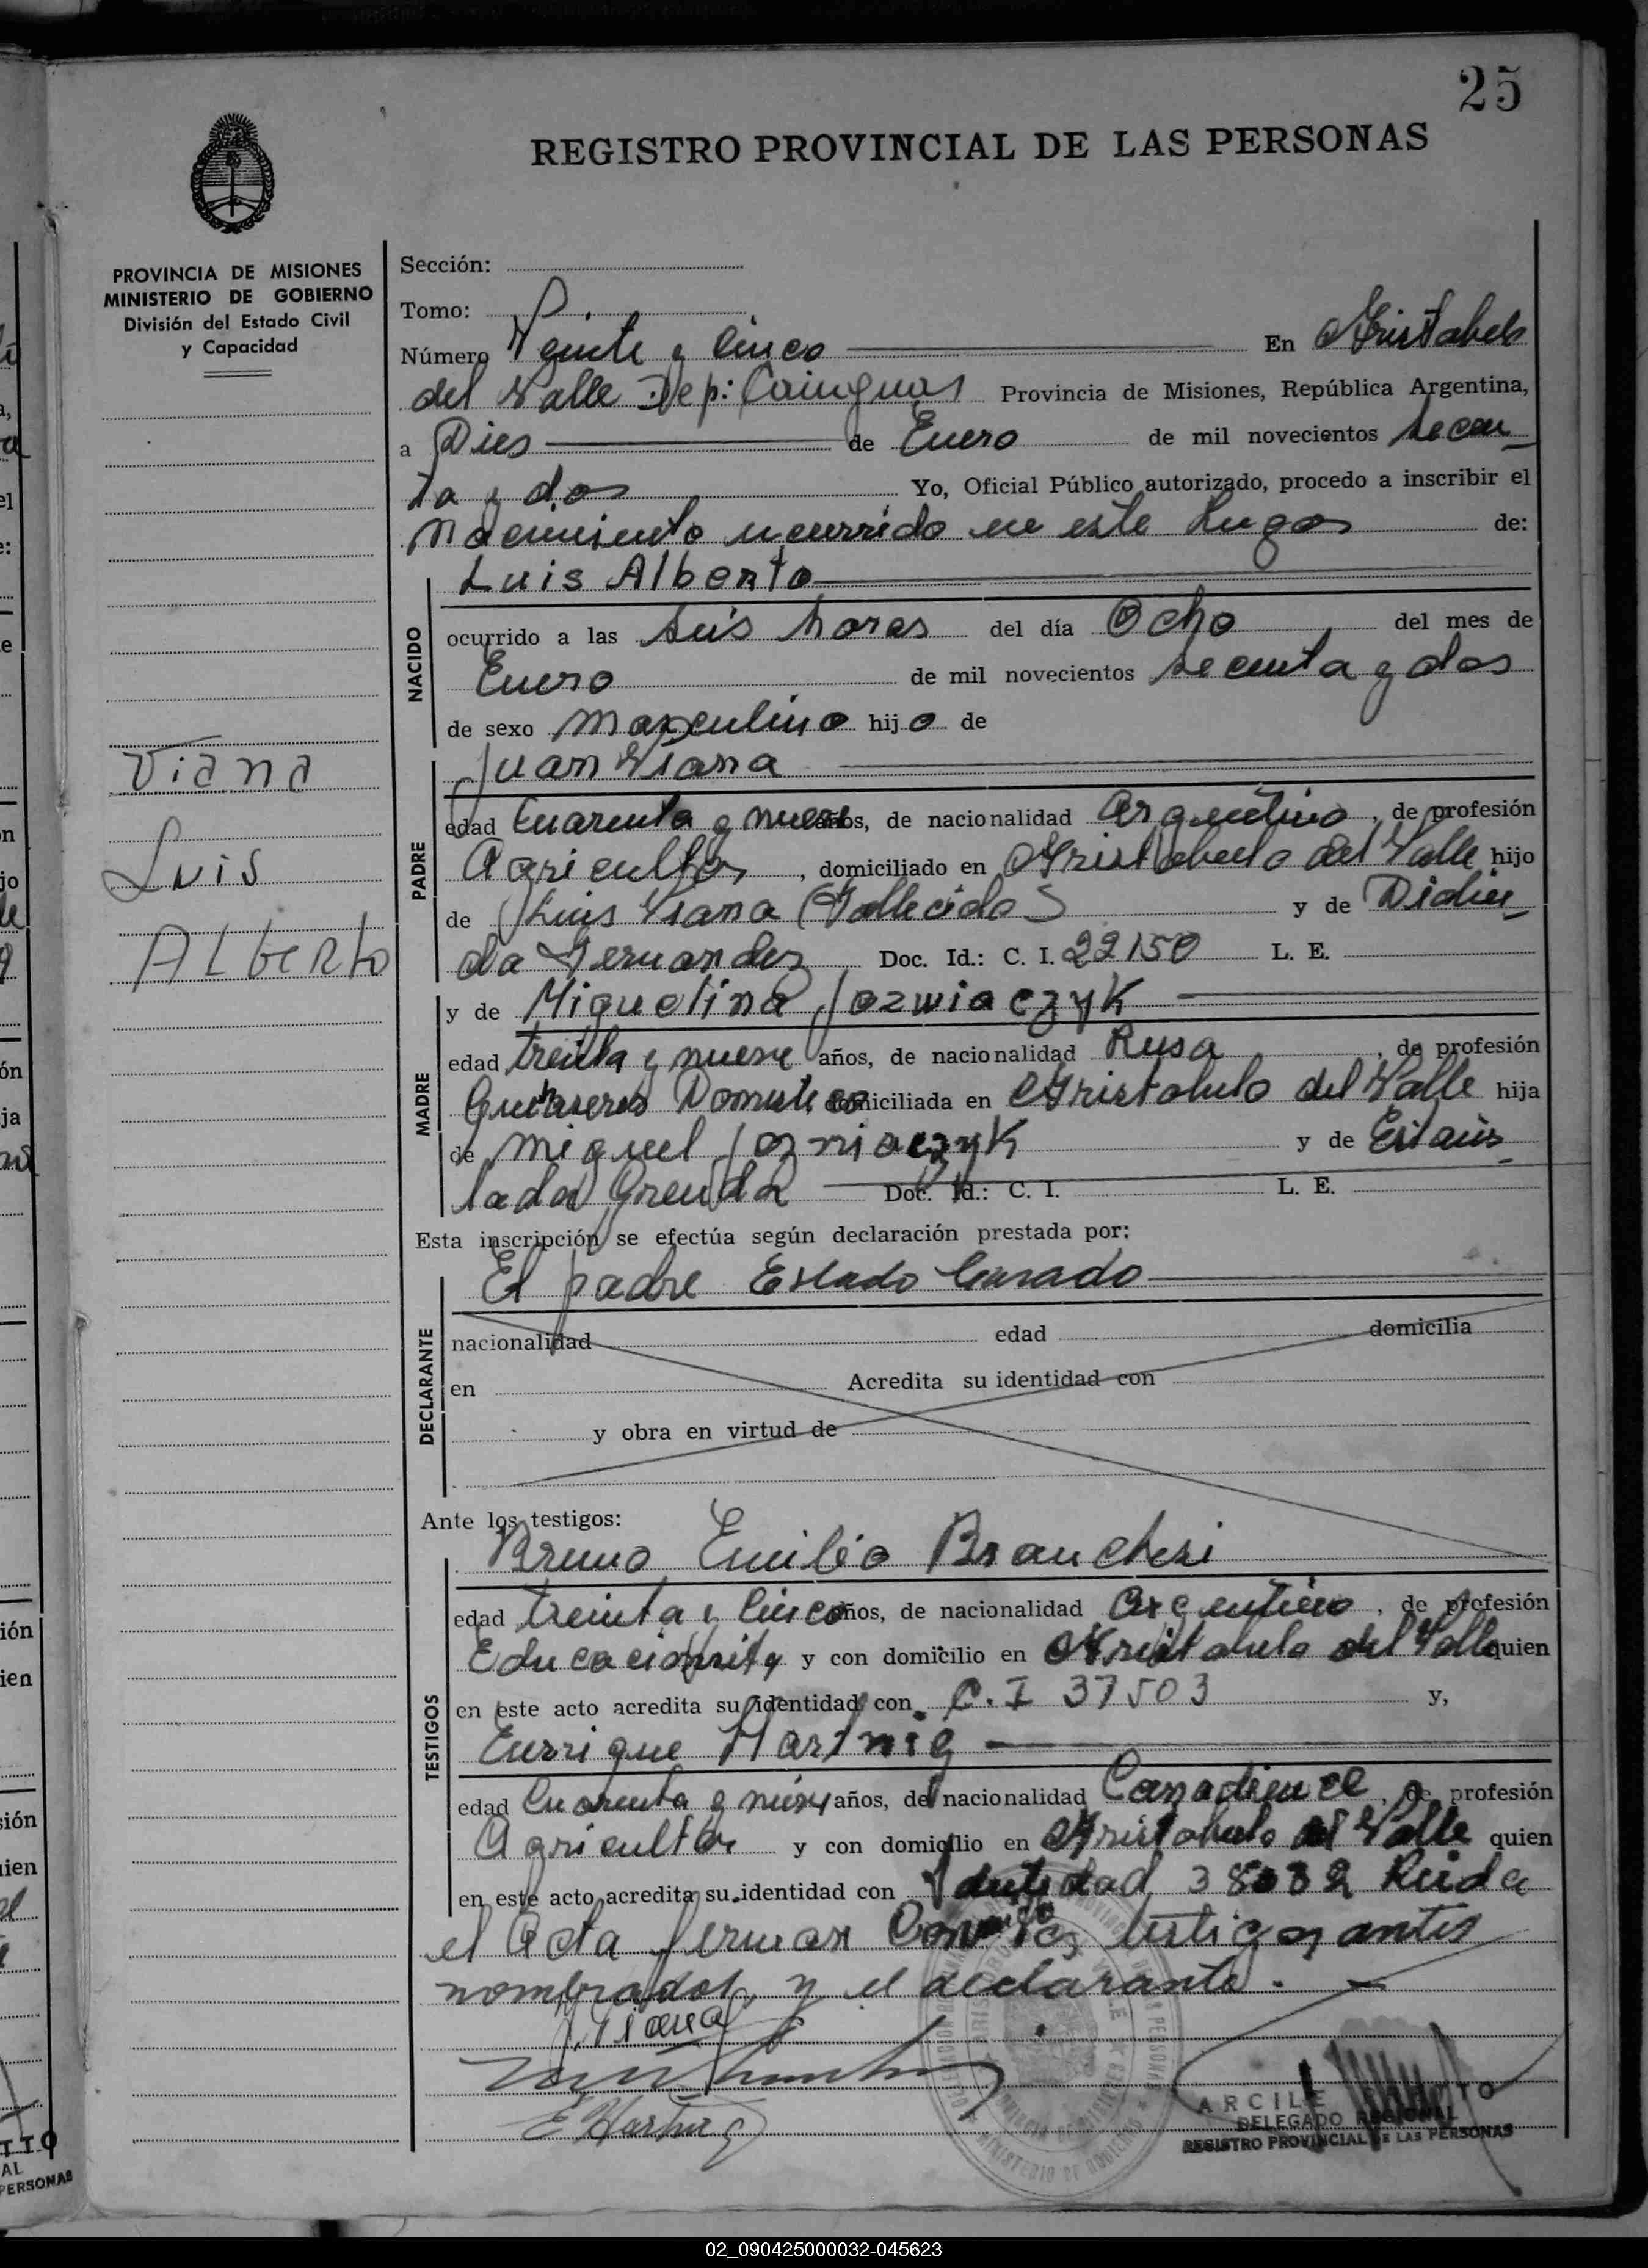 25
REGISTRO PROVINCIAL DE LAS PERSONAS
PROVINCIA DE MISIONES
MINISTERIO DE GOBIERNO
División del Estado Civil
y Capacidad
Sección:
Tomo:
Número Veinte y Cinco En Aristobulo
del Valle Dep: Cainguas Provincia de Misiones, República Argentina,
a Dies de Enero de mil novecientos secen
ta y dos Yo, Oficial Público autorizado, procedo a inscribir el
nacimiento ucurrido en este Lugar de:
Luis Alberto
NACIDO
ocurrido a las seis horas del día Ocho del mes de
Enero de mil novecientos secenta y dos
de sexo masculino hijo de
Viana
Luis
Alberto
Juan Viana
PADRE
edad Cuarenta y nueve años, de nacionalidad Argentino, de profesión
Agricultor, domiciliado en Aristobulo del Valle hijo
de Luis Viana (Fallecido) y de Didin
da Fernandez Doc. Id.: C. I. 22150 L. E.
y de Miguelina Jozwiaczyk
MADRE
edad treinta y nueve años, de nacionalidad Rusa, de profesión
Domestico domiciliada en Aristobulo del Valle hija
de Miguel Jozwiaczyk y de
Grenda Doc. Id.: C. I. L. E.
Esta inscripción se efectúa según declaración prestada por:
El padre Estado Casado
DECLARANTE
nacionalidad edad domicilia
en Acredita su identidad con
y obra en virtud de
Ante los testigos:
Bruno Emilio Branchesi
TESTIGOS
edad treinta y Cinco años, de nacionalidad Argentino, de profesión
Educacionista y con domicilio en Aristobulo del Valle quien
en este acto acredita su identidad con C. I 37503 y,
Enrrique Hartwig
edad Cuarenta y nueve años, de nacionalidad Canadience, de profesión
Agricultor y con domicilio en Aristobulo del Valle quien
en este acto acredita su identidad con Identidad 38032 Leida
el Acta firman Con los testigos antes
nombrados y el declarante.
J. Viana
E Hartwig
ARCILE
DELEGADO REGIONAL
REGISTRO PROVINCIAL DE LAS PERSONAS
02_090425000032-045623